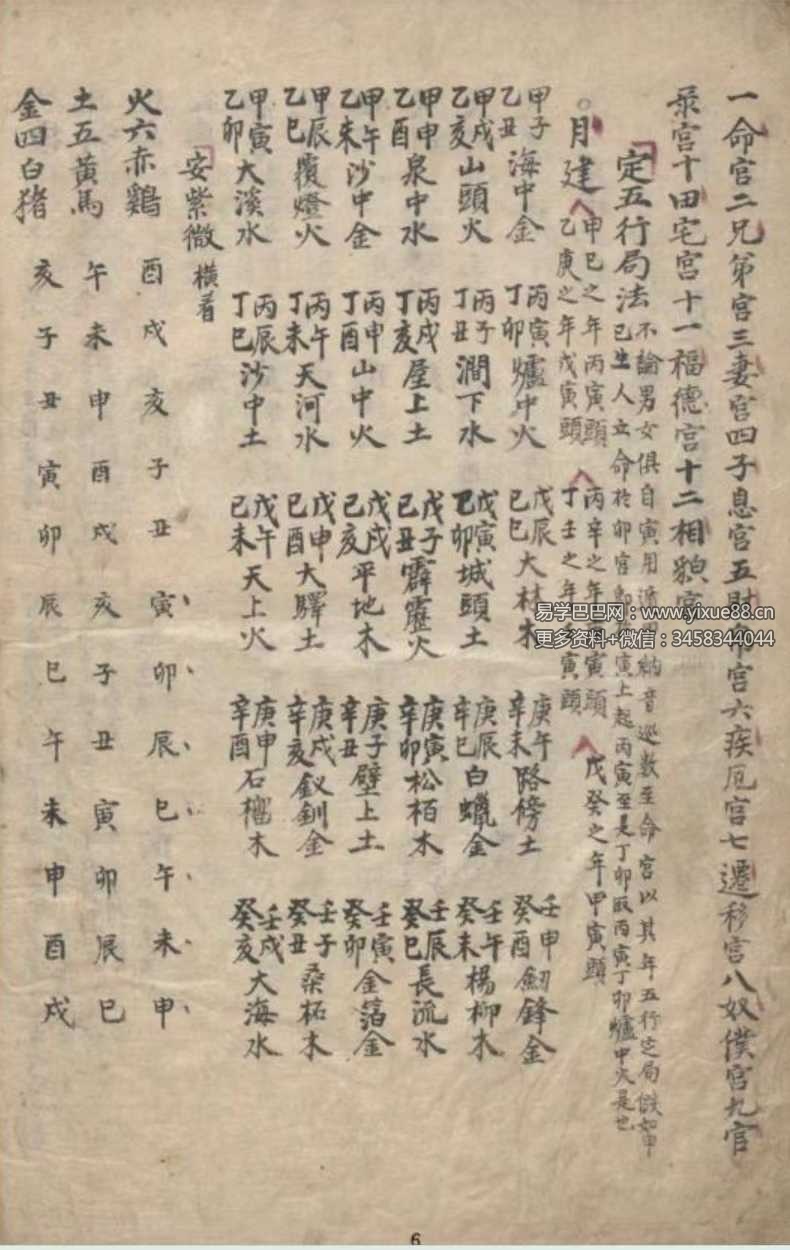 一命宮二兄弟宮三妻宮四子息宮五財帛宮六疾厄宮七遷移宮八奴僕宮九官
录宮十田宅宮十一福德宮十二相貌宮
定五行局法
不論男女俱自寅用遁甲納音巡数至命宮以其年五行定局假如甲
己生人立命於卯宮即在寅上起丙寅至是丁卯取丙寅丁卯爐中火是也
月建
甲巳之年丙寅頭 丙辛之年庚寅頭 戊癸之年甲寅頭
乙庚之年戊寅頭 丁壬之年壬寅頭
甲子乙丑海中金 丙寅丁卯爐中火 戊辰己巳大林木 庚午辛未路傍土 壬申癸酉劔鋒金
甲戌乙亥山頭火 丙子丁丑澗下水 戊寅乙卯城頭土 庚辰辛巳白蠟金 壬午癸未楊柳木
甲申乙酉泉中水 丙戌丁亥屋上土 戊子己丑霹靂火 庚寅辛卯松栢木 壬辰癸巳長流水
甲午乙未沙中金 丙申丁酉山中火 戊戌己亥平地木 庚子辛丑壁上土 壬寅癸卯金箔金
甲辰乙巳覆燈火 丙午丁未天河水 戊申己酉大驛土 庚戌辛亥釵釧金 壬子癸丑桑柘木
甲寅乙卯大溪水 丙辰丁巳沙中土 戊午己未天上火 庚申辛酉石榴木 壬戌癸亥大海水
安紫微 横看
火六赤鷄 酉戌亥子丑寅卯辰巳午未申
土五黄馬 午未申酉戌亥子丑寅卯辰巳
金四白猪 亥子丑寅卯辰巳午未申酉戌
易学巴巴网：www.yixue88.cn
更多资料+微信：3458344044
6